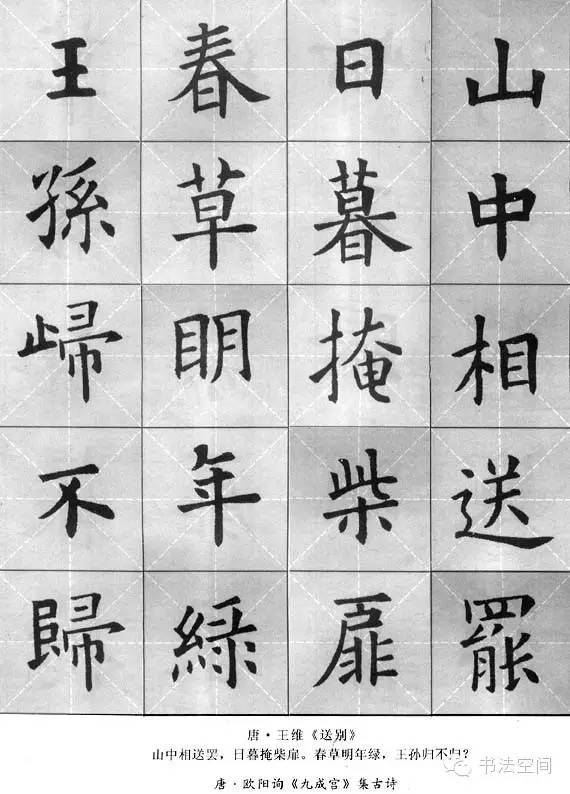 山中相送罷
日暮掩柴扉
春草明年綠
王孫歸不歸
唐·王维《送别》
山中相送罢，日暮掩柴扉。春草明年绿，王孙归不归？
唐·欧阳询《九成宫》集古诗
书法空间